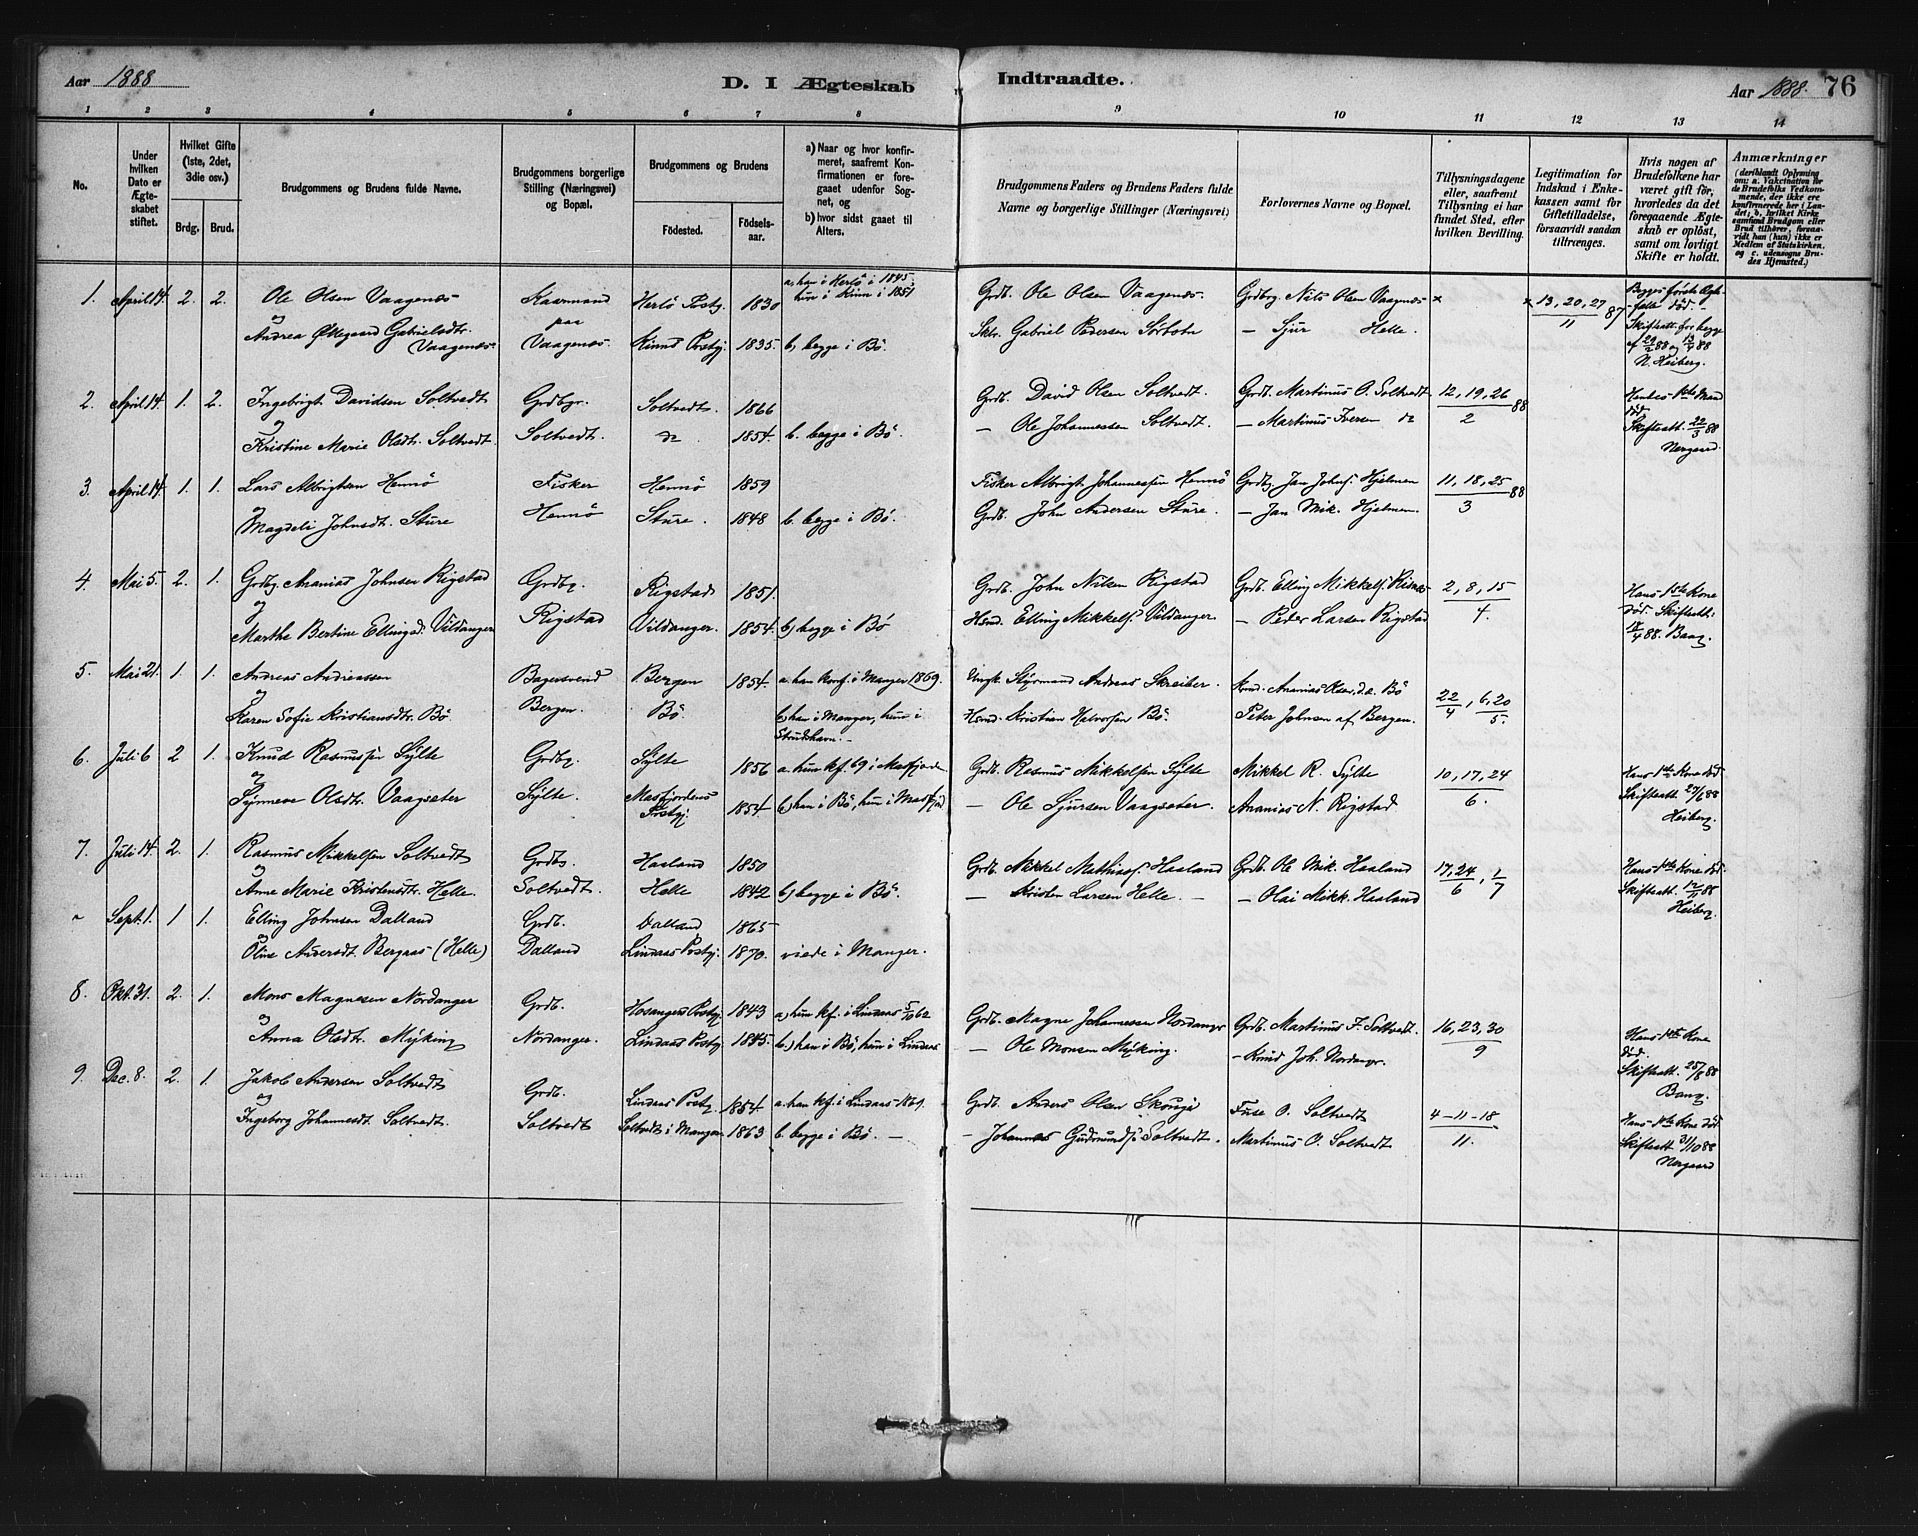 Aar 1888
D. I Ægteskab
Indtraadte.
Aar 1888. 76
1 2 3 4 5 6 7 8 9 10 11 12 13 14
No.
Under hvilken Dato er Ægteskabet stiftet.
Hvilket Gifte (1ste, 2det, 3die osv.)
Brdg. Brud.
Brudgommens og Brudens fulde Navne.
Brudgommens borgerlige Stilling (Næringsvei) og Bopæl.
Brudgommens og Brudens
Fødested. Fødselsaar.
a) Naar og hvor konfirmeret, saafremt Konfirmationen er foregaaet udenfor Sognet, og
b) hvor sidst gaaet til Alters.
Brudgommens Faders og Brudens Faders fulde Navne og borgerlige Stillinger (Næringsvei)
Forlovernes Navne og Bopæl.
Tillysningsdagene eller, saafremt Tillysning ei har fundet Sted, efter hvilken Bevilling.
Legitimation for Indskud i Enkekassen samt for Giftetilladelse, forsaavidt saadan tiltrænges.
Hvis nogen af Brudefolkene har været gift før, hvorledes da det foregaaende Ægteskab er opløst, samt om lovligt Skifte er holdt.
Anmærkninger (deriblandt Oplysning om: a. Vakcination for de Brudefolks Vedkommende, der ikke ere konfirmerede her i Landet; b. hvilket Kirkesamfund Brudgom eller Brud tilhører, forsaavidt han (hun) ikke er Medlem af Statskirken, og c. udensogns Brudes Hjemsted.)
1. April 14. 2. 2. Ole Olsen Vaagenes Kaarmand Herlö Prstgj. 1830 a, han i Herlö i 1845, hun i Kinn i 1851 Grdb. Ole Olsen Vaagenes. Grdbrg. Nils Olsen Vaagenes × × 13, 20, 27/11 87 Begges første Ægtefælle død.
og Andrea Øllegaard Gabrielsdtr. Vaagenes. paa Vaagenes Kinns Prstgj. 1835. b, begge i Bö. Gabriel Pedersen Sørbotn — Sjur Helle. Skifteatt. for begge af 29/2 88 og 13/4 88 N. Heiberg.
2. April 14. 1. 2. Ingebrigt Davidsen Soltvedt Grdbgr. Soltvedt. 1866 Grdb. David Olsen Soltvedt. Grdb. Martinus O. Soltvedt 12, 19, 26/2 88 Hendes 1ste Mand død.
og Kristine Marie Olsdtr. Soltvedt. Soltvedt. do 1854. b. begge i Bö. — Ole Johannessen Soltvedt. — Martinus Iversen do Skifteatt. 22/3 88 Nergaard.
3. April 14. 1. 1. Lars Albrigtsen Hennö Fisker Hennö 1859 Fisker Albrigt Johannessen Hennö Grdbg. Jan Johns. Hjelmen 11, 18, 25/3 88
og Magdeli Johnsdt. Sture Hennö Sture. 1848 b. begge i Bö. Grdb. John Andersen Sture. — Jan Mik. Hjelmen.
4. Mai 5. 2. 1. Grdbg. Ananias Johnsen Rigstad Grdbg. Rigstad 1851. Grdb. John Nilsen Rigstad Grdb. Elling Mikkels. Risnes 2, 8, 15/4. Hans 1ste Kone død. Skifteatt.
og Marthe Bertine Ellingsd. Vildanger Rigstad Vildanger. 1854. b, begge i Bö Elling Mikkels. Vildanger. — Peder Larsen Rigstad 88. Bang.
5. Mai 21. 1. 1. Andreas Andreassen Bagersvend Bergen 1854. a. han konf. i Manger 1869. Styrmand Andreas Skreiber. Ananias Olsen, d.æ. Bö 22/4, 6, 20/5.
og Karen Sofie Kristiansdtr. Bö Bergen. Bö. b, han i Manger, hun i Strudshavn. Kristian Halvorsen Bö. Peter Johnsen af Bergen.
6. Juli 6 2 1. Knud Rasmussen Sylte Grdbg. Sylte 1856 a. hun kf. 69 i Masfjorden Grdb. Rasmus Mikkelsen Sylte Mikkel R. Sylte 10, 17, 24/6. Hans 1ste Kone død
og Synneve Olsdtr. Vaagsæter Sylte. Masfjordens Prstgj. 1854. b, han i Bö, hun i Masfj. — Ole Sjursen Vaagsæter. Ananias N. Rigstad Skifteatt. 27/6 88 Heiberg.
7. Juli 14. 2. 1. Rasmus Mikkelsen Soltvedt Grdbg. Haaland 1850 Grdb. Mikkel Mathiass. Haaland Grdb. Ole Mik. Haaland 17, 24/6, 1/7 Hans 1ste Kone død.
og Anne Marie Kristensdtr. Helle. Soltvedt. Helle 1842 b, begge i Bö. — Kristen Larsen Helle. — Olai Mikk. Haaland Skifteatt. 88 Heiberg.
~ Sept. 1. 1 1. Elling Johnsen Dalland Grdb. Dalland 1865
og Oline Andersdt. Bergaas (Helle) Dalland Lindaas Prstgj. 1870. viede i Manger.
8. Okt. 31. 2. 1. Mons Magnesen Nordanger Grdb. Hosangers Prstgj. 1843 a, hun kf. i Lindaas 5/10 62 Grdb. Magne Johannessen Nordanger Grdb. Martinus F. Soltvedt. 16, 23, 30/9 Hans 1ste Kone død.
og Anna Olsdt. Myking Nordanger. Lindaas Prstgj. 1845. b.) han i Bö, hun i Lindaas — Ole Monsen Myking. — Knud Joh. Nordangr. Skifteatt. 25/8 88 Bang.
9. Dec. 8. 2. 1. Jakob Andersen Soltvedt Grdb. Lindaas Prstg. 1854. a. han kf. i Lindaas 1869. Grdb. Anders Olsen Skouge Fuse O. Soltvedt 4-11-18/11. Hans 1ste Kone død
og Ingeborg Johannesdt. Soltvedt. Soltvedt Soltvedt i Manger 1863 b. begge i Bö. — — Johannes Gudmunds. Soltvedt. Martinus O. Soltvedt Skifteatt. 31/10 88 Nergaard